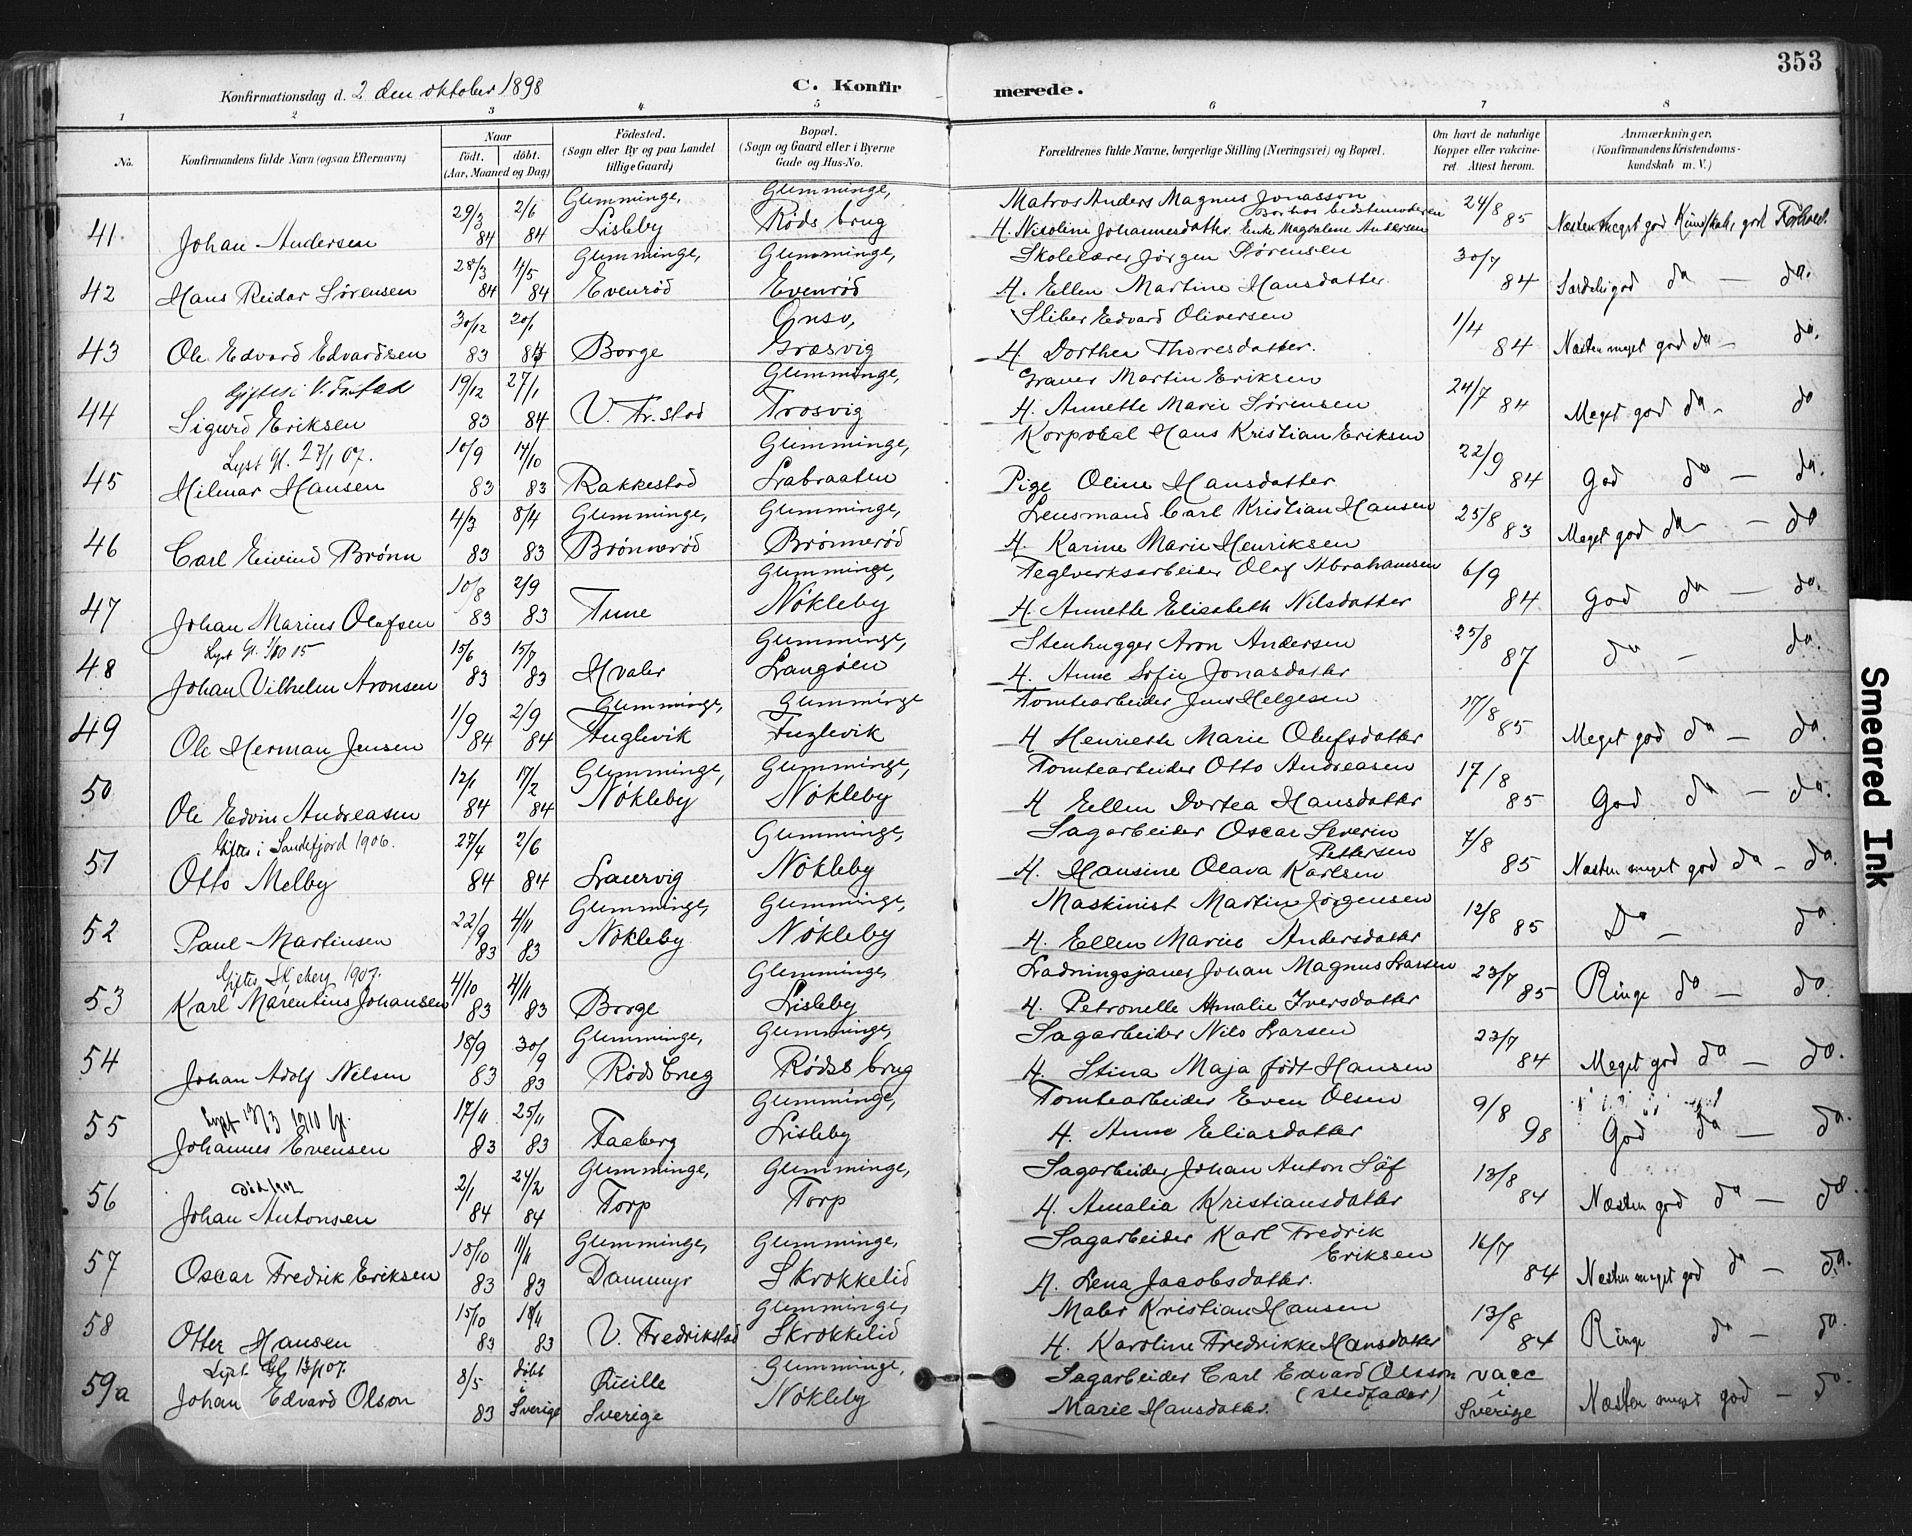 353
Konfirmationsdag d. 2 den oktober 1898 C. Konfirmerede.
1 2 3 4 5 6 7 8
No. Konfirmandens fulde Navn (ogsaa Efternavn) Naar født. døbt. (Aar, Maaned og Dag) Fødested. (Sogn eller By og paa Landet tillige Gaard) Bopæl. (Sogn og Gaard eller i Byerne Gade og Hus-No. Forældrenes fulde Navne, borgerlige Stilling (Næringsvei) og Bopæl. Om havt de naturlige Kopper eller vakcineret. Attest herom. Anmærkninger. (Konfirmandens Kristendomskundskab m. V.)
Glemminge, Glemminge, Matros Anders Magnus Jonasson
29/3 2/6 24/8
41. Johan Andersen 84 84 Lisleby Røds brug H. Nikoline Johannesdatter. Enke Magdalene Andersen 85 Næsten meget god Kundskab, god Forhold.
28/3 4/5 Glemminge, Glemminge, Skolelærer Jørgen Sørensen 30/7
42 Hans Reidar Sørensen 84 84 Evenrød Evenrød H. Ellen Martine Hansdatter 84 Særdeles god do — do.
30/12 20/1 Onsø, Sliber Edvard Oliversen 1/4
43 Ole Edvard Edvardsen 83 84 Borge Græsvig H. Dorthea Thoresdatter. 84 Næsten meget god do — do.
Giftes i V. Fr.stad 19/12 27/1 Glemminge, Graver Martin Eriksen 24/7
44 Sigurd Eriksen 83 84 V. Fr.stad Trosvig H. Annette Marie Sørensen 84 Meget god do - do
Lyst Gl. 27/1 07. 10/9 14/10 Glemminge, Korporal Hans Kristian Eriksen 22/9
45 Hilmar Hansen 83 83 Rakkestad Labraaten Pige Oline Hansdatter 84 God do — do.
4/3 8/4 Glemminge, Glemminge, Lensmand Carl Kristian Hansen 25/8
46 Carl Eivind Brønn 83 83 Brønnerød Brønnerød H. Karine Marie Henriksen 83 Meget god do — do
10/8 2/9 Glemminge, Teglverksarbeider Olaf Abrahamsen 6/9
47 Johan Marius Olafsen 83 83 Tune Nökleby H. Annette Elisabeth Nilsdatter 84 God do — do.
15/6 15/7 Glemminge, Stenhugger Aron Andersen 25/8
48 Johan Vilhelm Aronsen 83 83 Hvaler Langøen H. Anne Sofie Jonasdatter 87 do — do.
1/9 2/9 Glemminge, Glemminge Tomtearbeider Jens Helgesen 17/8
49 Ole Herman Jensen 84 84 Fuglevik Fuglevik H Henriette Marie Olufsdatter 85 Meget god do — do.
12/1 17/2 Glemminge, Glemminge, Tomtearbeider Otto Andreasen 17/8
50 Ole Edvin Andreasen 84 84 Nökleby Nökleby H Ellen Dortea Hansdatter 85 God do — do.
Giftes i Sandefjord 1906. 27/4 2/6 Glemminge, Sagarbeider Oscar Severin Pettersen 7/8
51 Otto Melby 84 84 Laurvig Nökleby H. Hansine Olava Karlsen 85 Næsten meget god do - do.
22/9 4/11 Glemminge, Glemminge, Maskinist Martin Jørgensen 12/8
52 Paul Martinsen 83 83 Nökleby Nökleby H. Ellen Marie Andersdatter 85 Do — do.
Giftes Skjeberg 1907. 4/10 4/11 Glemminge, Johan Magnus Larsen 23/7
53 Karl Marentius Johansen 83 83 Borge Lisleby H. Petronelle Amalie Iversdatter 85 Ringe do — do.
18/9 30/9 Glemminge, Glemminge, Sagarbeider Nils Larsen 23/7
54 Johan Adolf Nilsen 83 83 Røds brug Røds brug H. Stina Maja født Hansen 84 Meget god do — do.
17/11 25/11 Glemminge, Tomtearbeider Even Olsen 9/8
55 Johannes Evensen 83 83 Faaberg Lisleby H. Anne Eliasdatter 98 God do — do.
2/1 24/2 Glemminge, Glemminge, Sagarbeider Johan Anton Löf 13/8
56 Johan Antonsen 84 84 Torp Torp H. Amalia Kristiansdatter 84 Næsten god do — do.
18/10 11/11 Glemminge, Glemminge, Sagarbeider Karl Fredrik Eriksen 16/7
57 Oscar Fredrik Eriksen 83 83 Dammyr Skrokkelid H. Lena Jacobsdatter. 84 Næsten meget god do — do.
15/10 18/11 Glemminge, Maler Kristian Hansen 13/8
58 Otter Hansen 83 83 V. Fredrikstad Skrokkelid H. Karoline Fredrikke Hansdatter 84 Ringe do — do.
8/5 døbt i Sverige Glemminge, Sagarbeider Carl Edvard Olsson (stedfader) vacc i Sverige
59a Johan Edvard Olson 83 Qville Sverige Nökleby Marie Hansdatter. Næsten meget god — do.
Smeared Ink